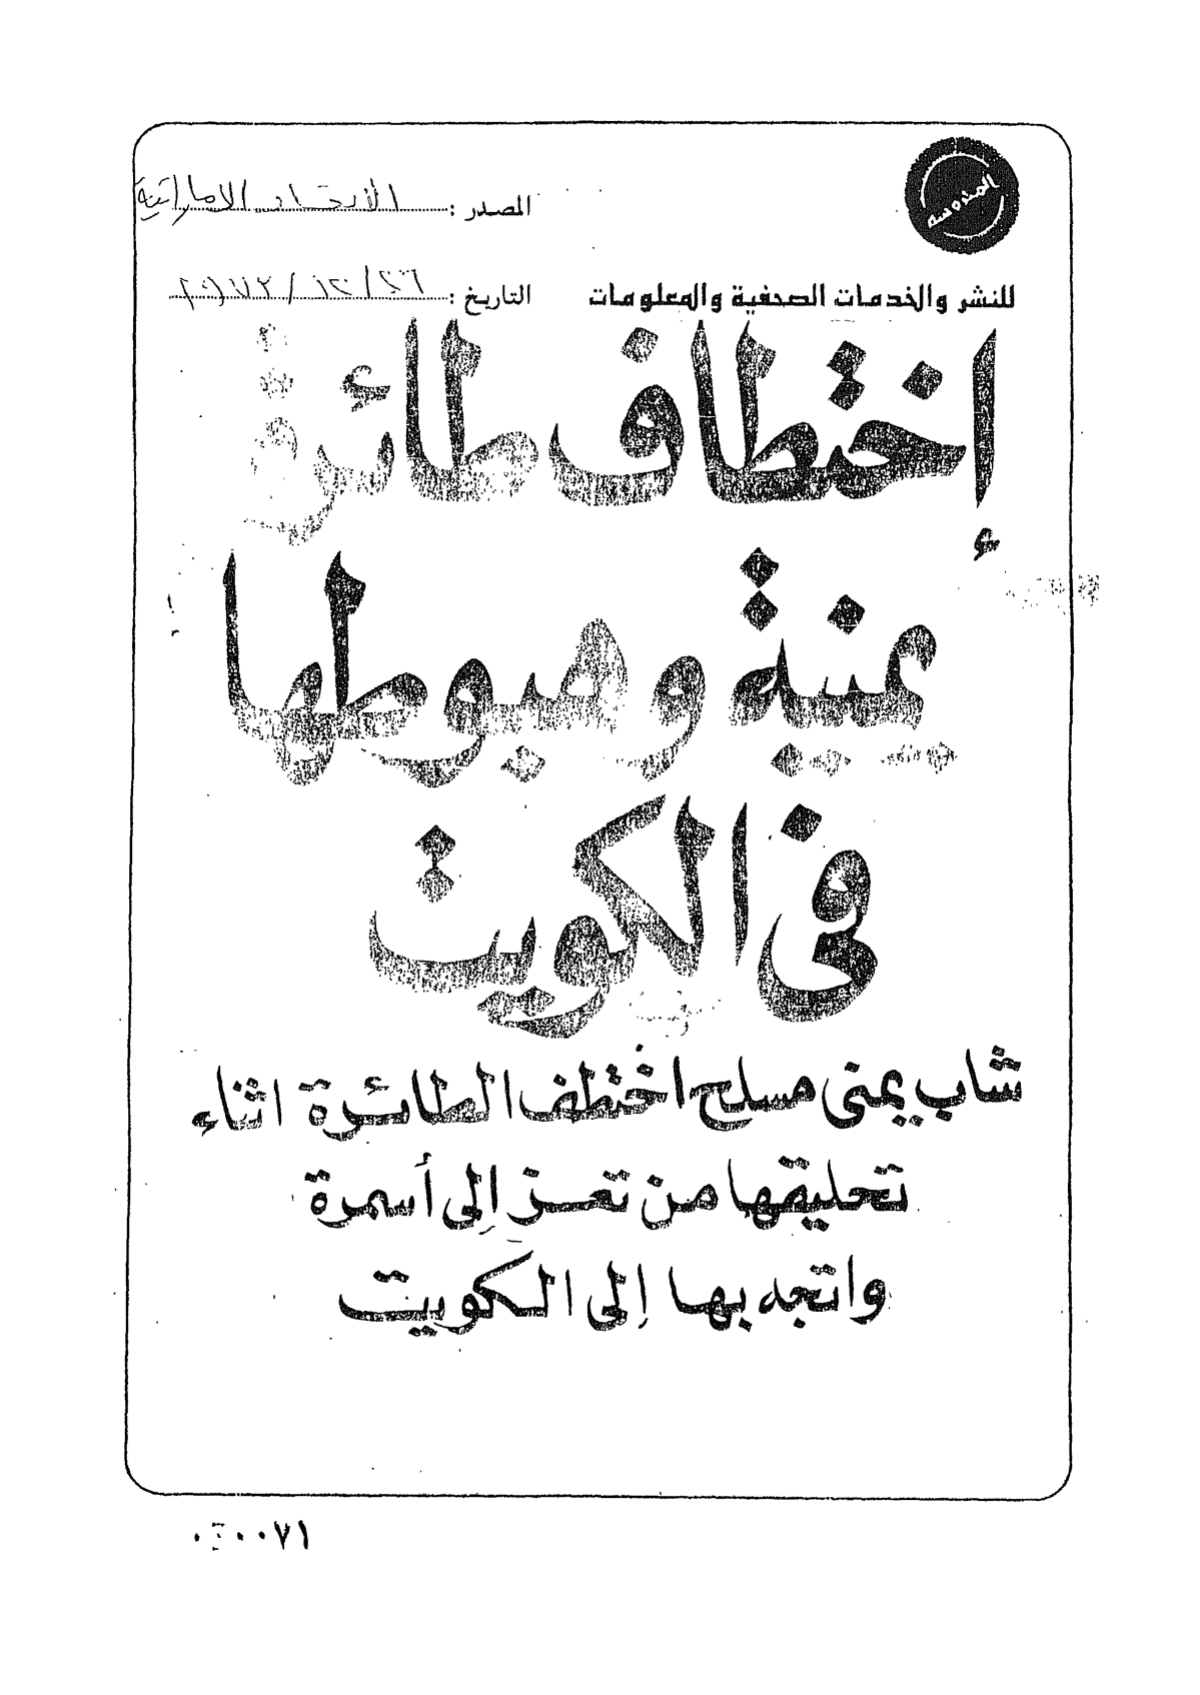 المصدر : الاتحاد الاماراتية
للنشر والخدمات الصحفية والمعلومات التاريخ :
إختطاف طائرة
يمنية وهبوطها
فى الكويت
شاب يمنى مسلح اختطف الطائرة اثناء
تحليقها من تعز إلى أسمرة
واتجه بها إلى الكويت